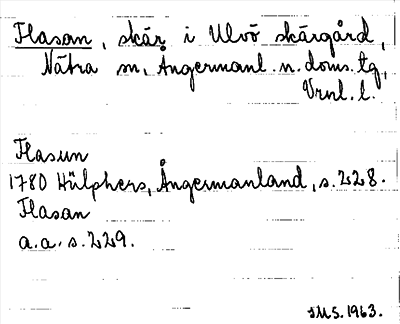 Flasan, skär i Ulvö skärgård,
Nätra sn, Ångermanl. n. doms. tg,
Vrnl. l.
Flasun
1780 Hülphers, Ångermanland, s. 228.
Flasan
a.a. s. 229.
IMS. 1963.